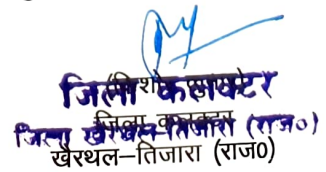 जिला कलक्टर
जिला कलक्टर
जिला खैरथल-तिजारा (राज०)
खैरथल–तिजारा (राज0)